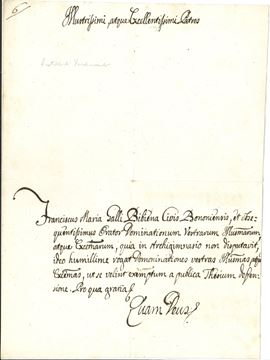 6
Illustrissimi, atque Excellentissimi Patres
Franciscus Maria Galli Bibiena Civis Bononiensis, et obse-
quentissimus Orator Dominationum Vestrarum Illmarum,
atque Excmarum, quia in Archigimnasio non Disputavit,
ideo humillime rogat Dominationes vestras Illmas, atque
Excmas, ut se velint exemptum a publica Thesium deffen-
sione. Pro qua gratia &
Quam Deus &